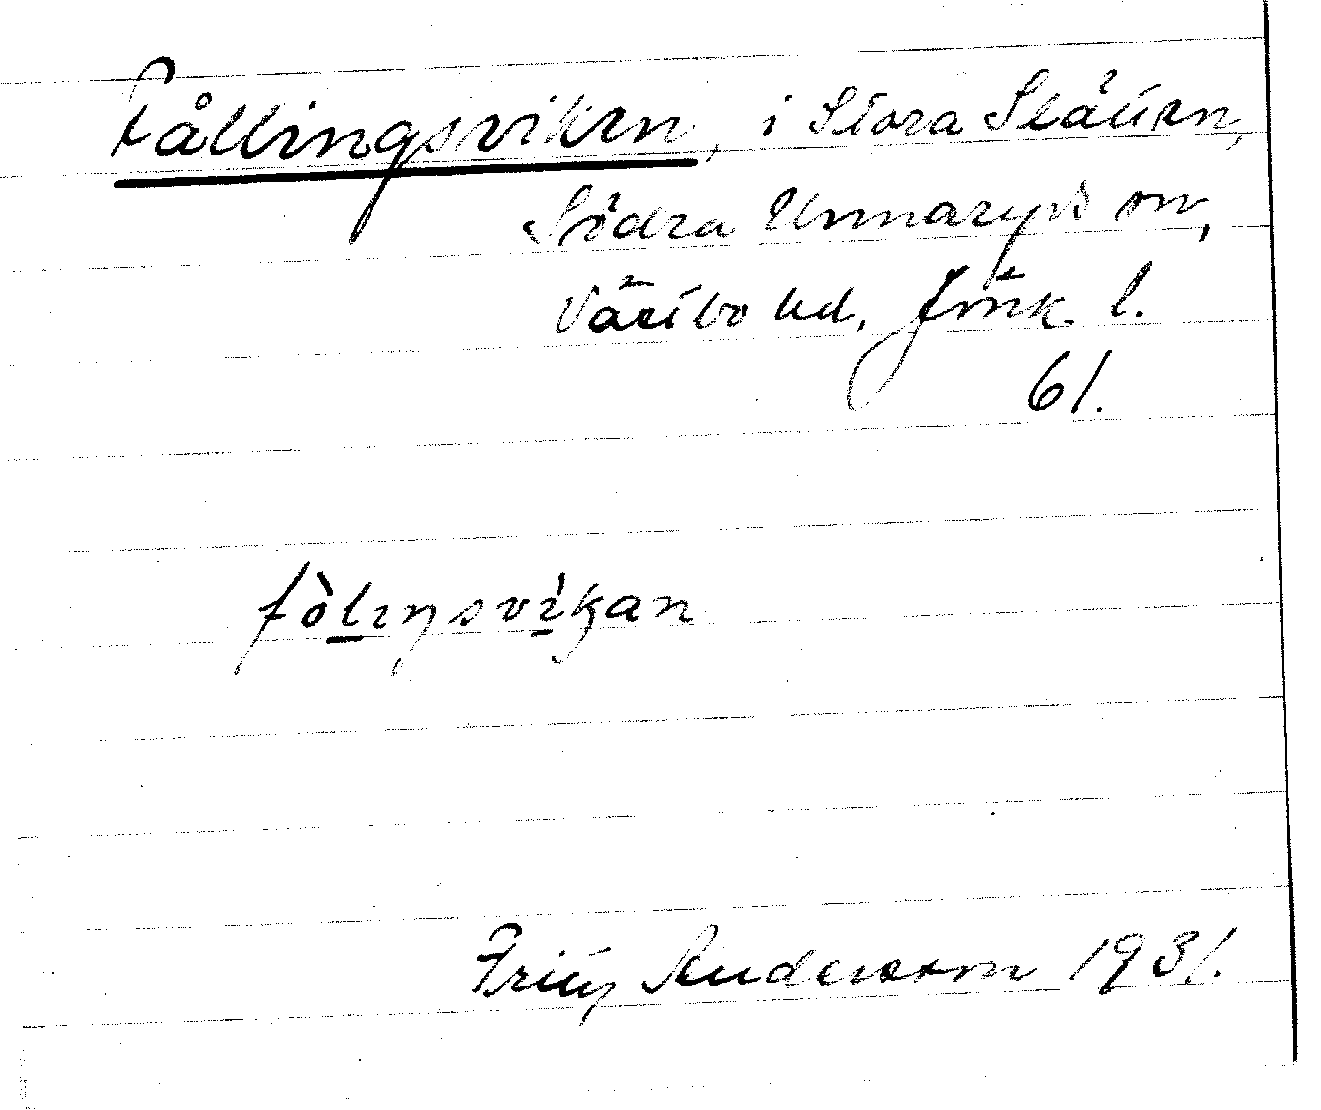 Fållingsviken, i Stora Slätten,
Södra Unnaryds sn,
Västbo hd, Jönk. l.
61.
fòlıŋsvìkan
Fritz Andersson 1931.